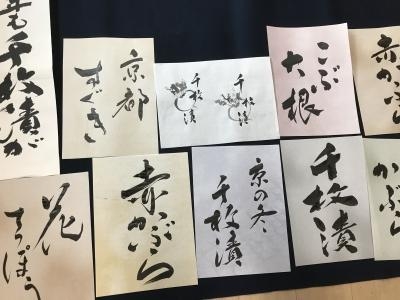 千枚漬が
京都
すぐき
千枚漬
千枚漬
こぶ
大根
赤かぶら
花
てっぽう
赤かぶら
京の冬
千枚漬
千枚漬
かぶら